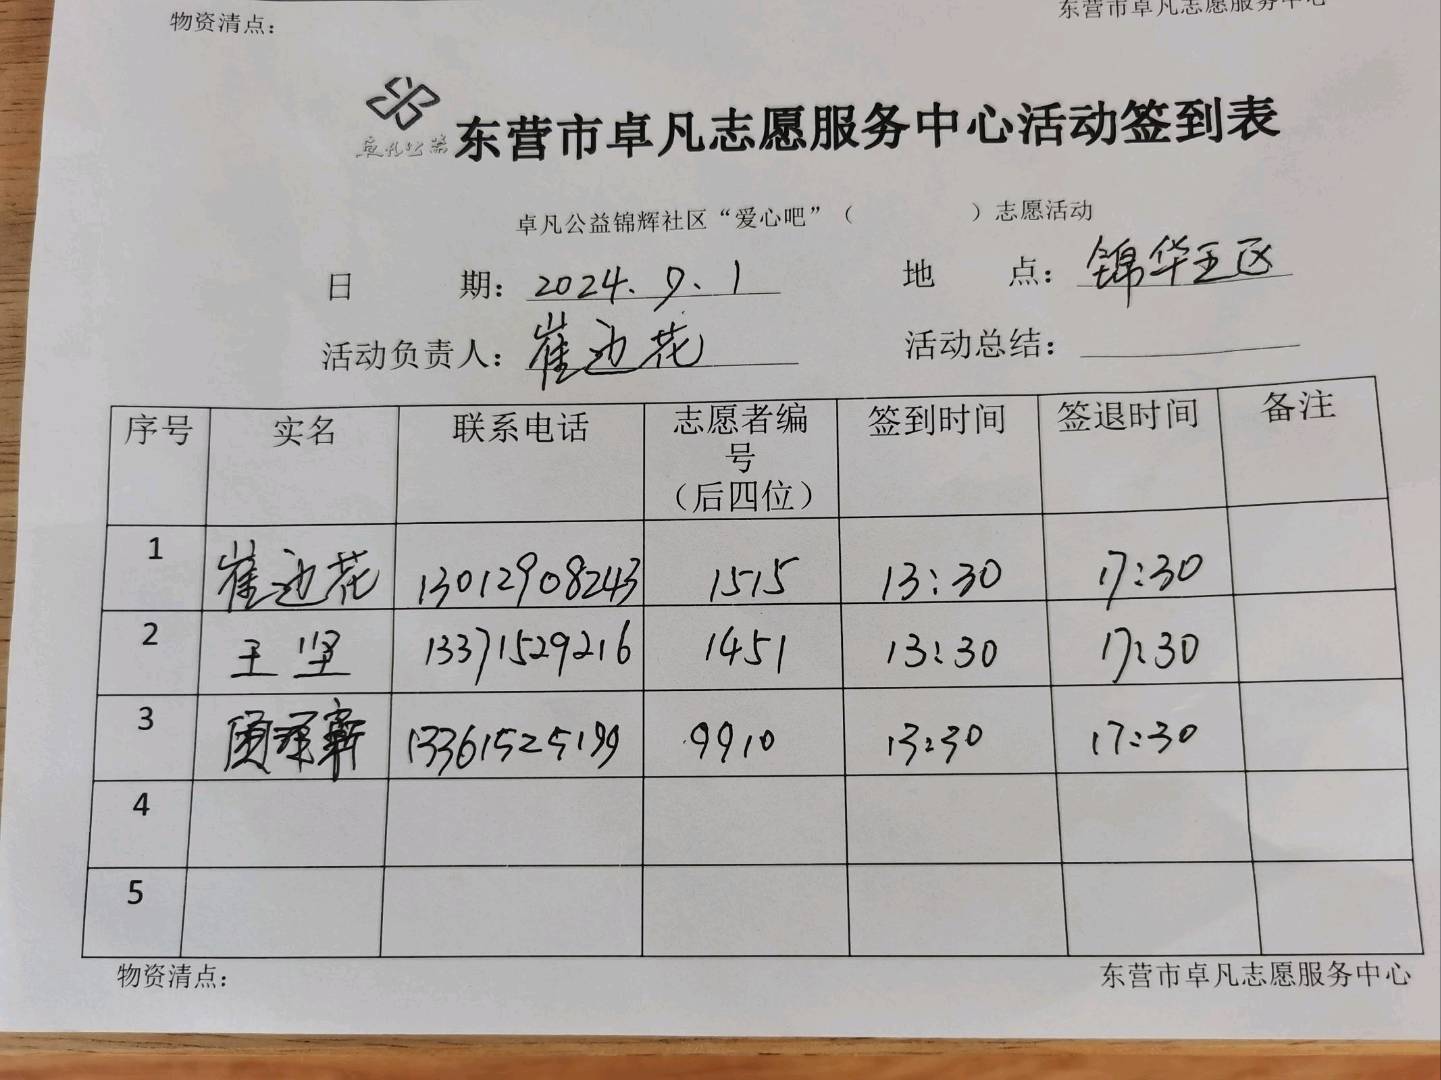 物资清点：
东营市卓凡志愿服务中心
卓凡公益
东营市卓凡志愿服务中心活动签到表
卓凡公益锦辉社区“爱心吧”（ ）志愿活动
日 期：2024.9.1 地 点：锦华五区
活动负责人：崔迎花 活动总结：
序号 实名 联系电话 志愿者编号（后四位） 签到时间 签退时间 备注
1 崔迎花 13012908243 1515 13:30 17:30
2 王坚 13371529216 1451 13:30 17:30
3 13361525199 9910 13:30 17:30
4
5
物资清点：
东营市卓凡志愿服务中心